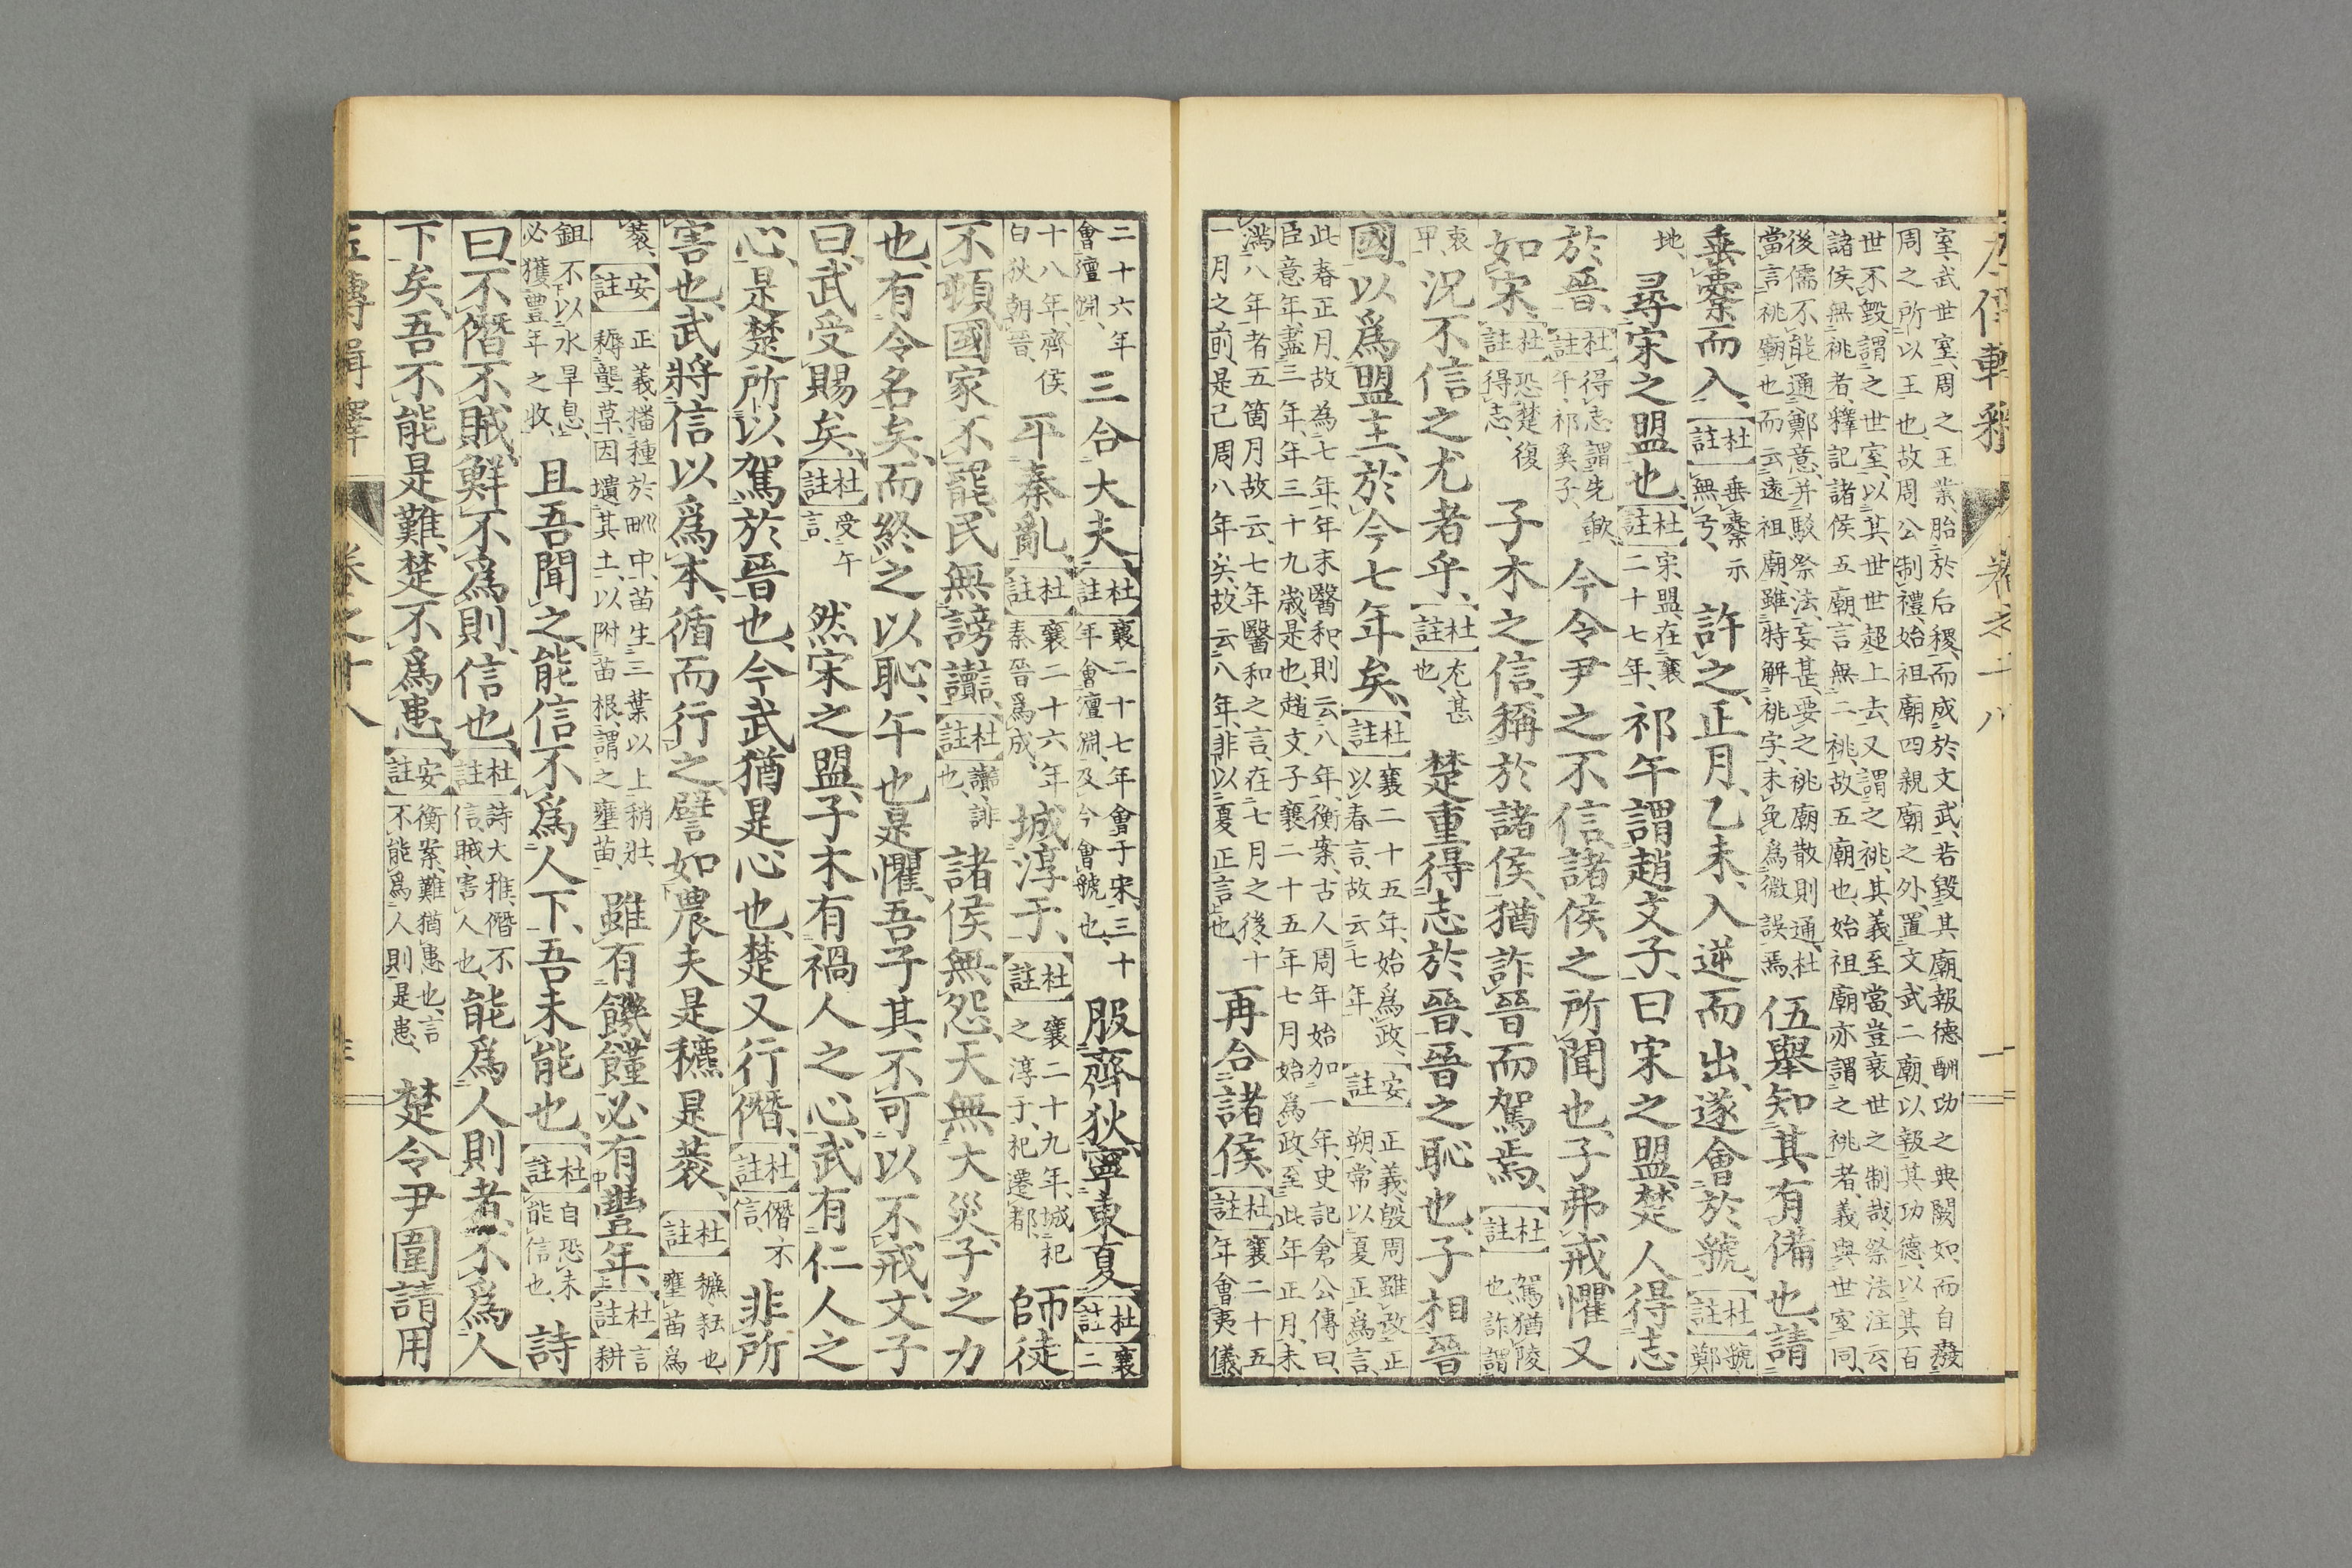 室、武世室、周之王業、胎於后稷、而成於文武、若毀其廟、報德酬功之典闕如、而自癈
周之所以王也、故周公制禮、始祖廟四親廟之外、置文武二廟、以報其功德、以其百
世不毀、謂之世室、以其世世超上去、又謂之祧、其義至當、豈衰世之制哉、祭法注云、
諸侯無祧者、釋記諸侯五廟、言無二祧、故五廟也、始祖廟亦謂之祧者、義與世室同、
後儒不能通鄭意、并駁祭法、妄甚、要之祧廟散則通、杜
當言祧廟也、而云遠祖廟、雖特解祧字、未免為微誤焉、
伍舉知其有備也、請
垂櫜而入、
【杜註】垂櫜示
無弓、
許之、正月、乙未、入逆而出、遂會於虢、
【杜註】虢、鄭
地、
尋宋之盟也、
【杜註】宋盟、在襄
二十七年、
祁午謂趙文子、曰宋之盟、楚人得志
於晉、
【杜註】得志謂先歃、
午、祁奚子、
今令尹之不信、諸侯之所聞也、子弗戒懼又
如宋、
【杜註】恐楚復
得志、
子木之信、稱於諸侯、猶詐晉而駕焉、
【杜註】駕猶陵
也、詐謂
衷
甲、
況不信之尤者乎、
【杜註】尤、甚
也、
楚重得志於晉、晉之恥也、子相晉
國、以爲盟主、於今七年矣、
【杜註】襄二十五年、始爲政、
以春言、故云七年、
【安註】正義、殷周雖改正
朔、常以夏正爲言、
此春正月、故為七年、年末醫和、則云八年、衡案、古人周年始加一年、史記倉公傳曰、
臣意年盡三年、年三十九歲是也、趙文子襄二十五年七月始爲政、至此年正月、未
滿八年者五箇月、故云七年、醫和之言、在七月之後、十
一月之前、是已周八年矣、故云八年、非以夏正言也、
再合諸侯、
【杜註】襄二十五
年會夷儀、
二十六年
會澶淵、
三合大夫、
【杜註】襄二十七年會于宋、三十
年會澶淵、及今會虢也、
服齊狄、寧東夏、
【杜註】襄二
十八年、齊侯
白狄朝晉、
平秦亂、
【杜註】襄二十六年
秦晉爲成、
城淳于、
【杜註】襄二十九年、城杞
之淳于、杞遷都、
師徒
不頓、國家不罷、民無謗讟、
【杜註】讟、誹
也、
諸侯無怨、天無大災、子之力
也、有令名矣、而終之以恥、午也是懼、吾子其不可以不戒、文子
曰、武受賜矣、
【杜註】受午
言、
然宋之盟、子木有禍人之心、武有仁人之
心、是楚所以駕於晉也、今武猶是心也、楚又行僭、
【杜註】僭、不
信、
非所
害也、武將信以爲本、循而行之、譬如農夫是穮是蔉、
【杜註】穮、耘也、
壅苗爲
蔉、
【安註】正義、播種於甽中、苗生三葉以上稍壯、
耨壟草、因壝其土、以附苗根、謂之壅苗、
雖有饑饉、必有豐年、
【杜註】言
耕
鉏不以水旱息、
必獲豐年之收、
且吾聞之、能信不爲人下、吾未能也、
【杜註】自恐未
能信也、
詩
曰、不僭不賊、鮮不爲則、信也、
【杜註】詩大雅、僭、不
信、賊、害人也、
能爲人則者、不爲人
下矣、吾不能是難、楚不爲患、
【安註】衡案、難猶患也、言
不能爲人則是患、
楚令尹圍請用
左傳輯釋 卷之十八